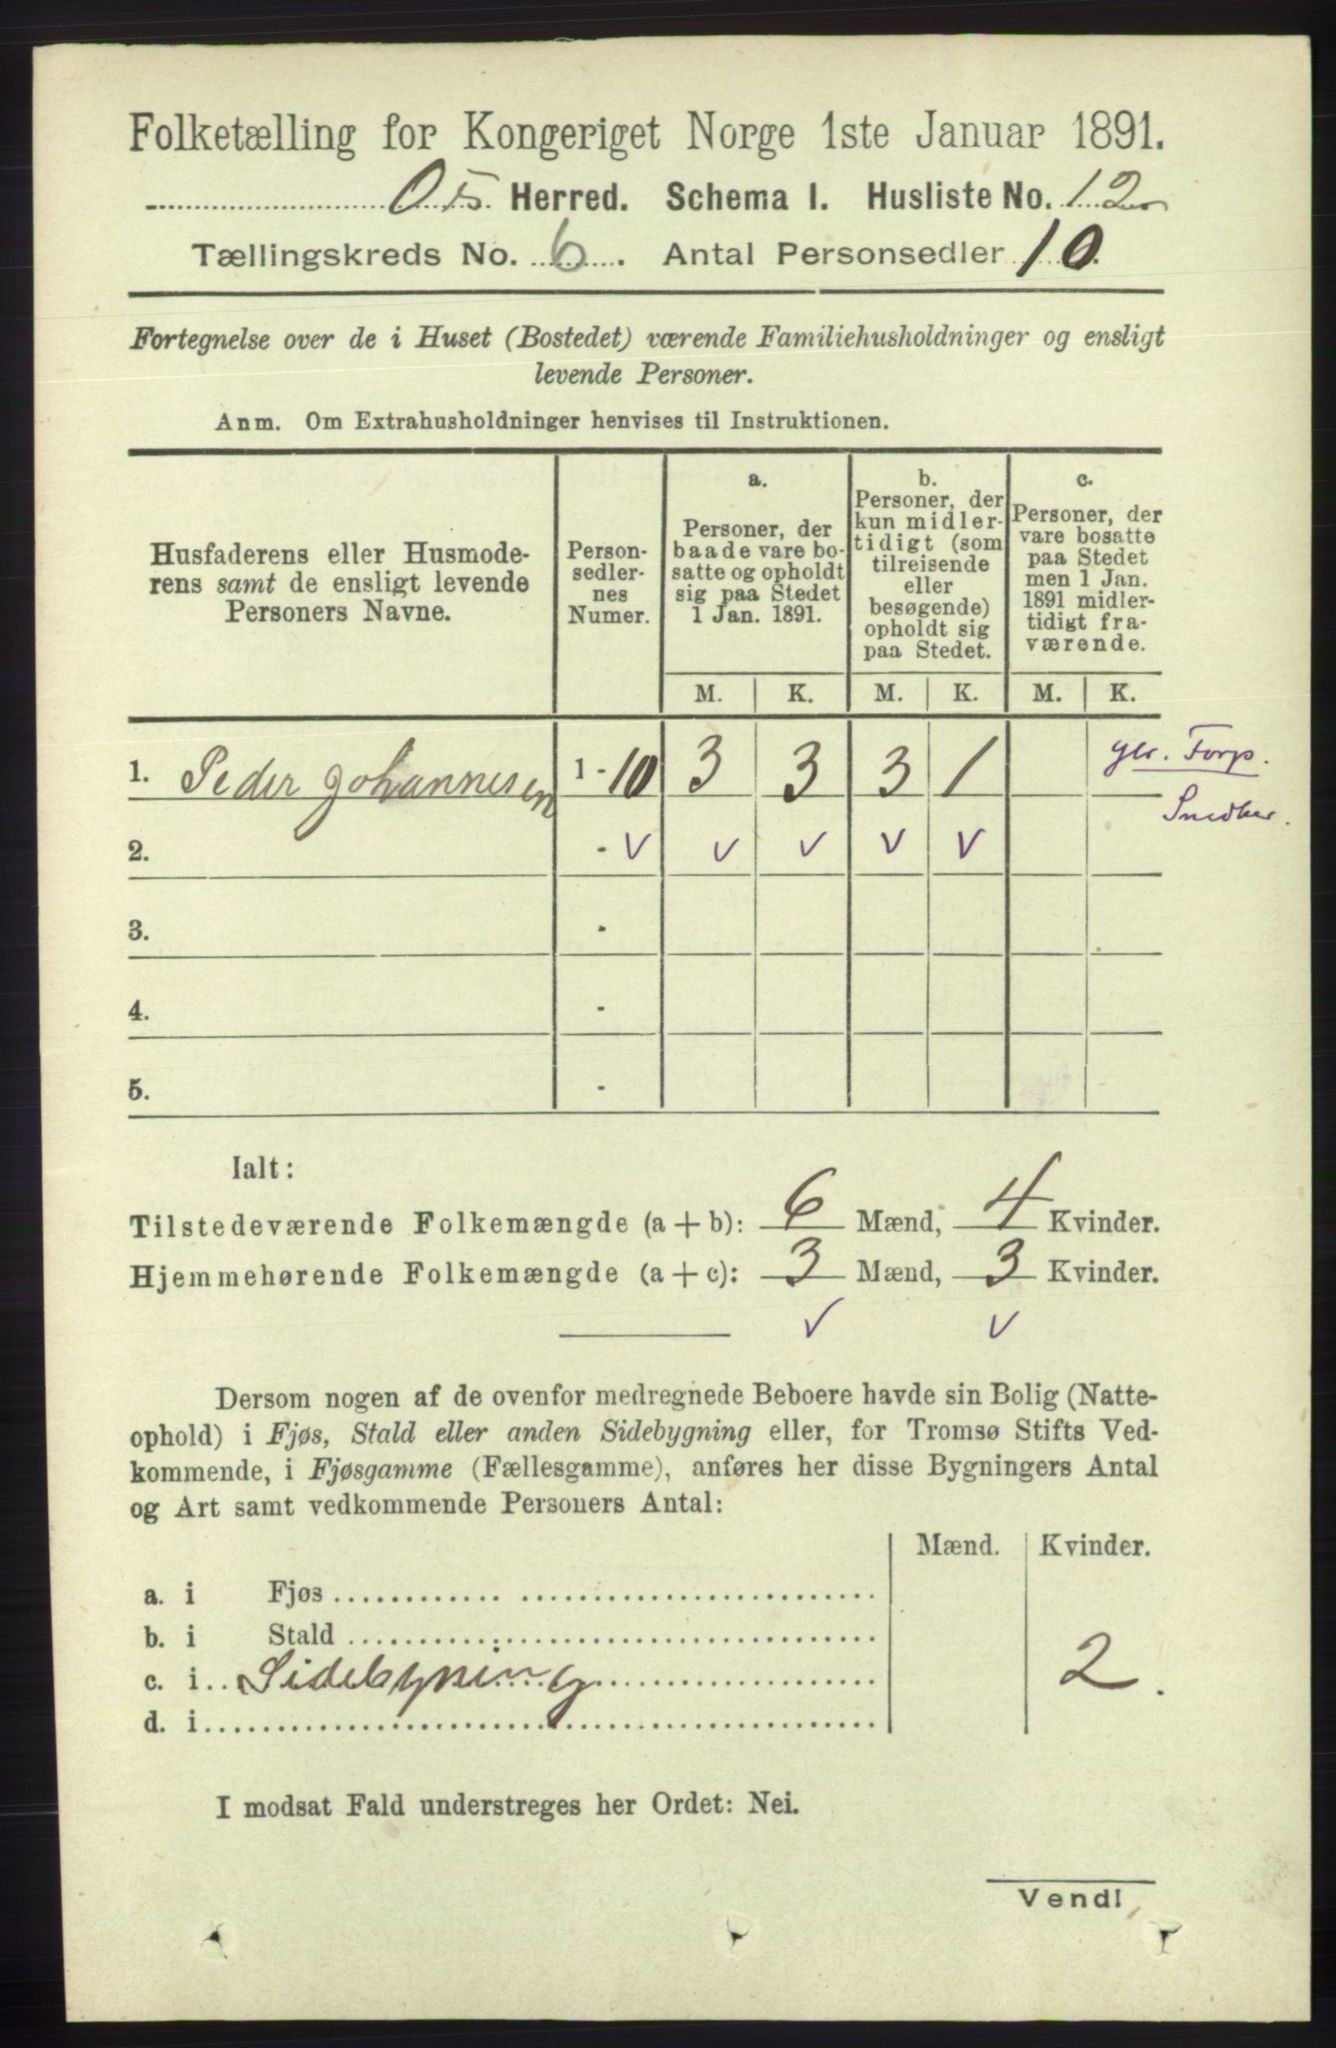 Folketælling for Kongeriget Norge 1ste Januar 1891.
Os Herred. Schema I. Husliste No. 12
Tællingskreds No. 6. Antal Personsedler 10.
Fortegnelse over de i Huset (Bostedet) værende Familiehusholdninger og ensligt
levende Personer.
Anm. Om Extrahusholdninger henvises til Instruktionen.
Husfaderens eller Husmode-
rens samt de ensligt levende
Personers Navne.
Person-
sedler-
nes
Numer.
a.
Personer, der
baade vare bo-
satte og opholdt
sig paa Stedet
1 Jan. 1891.
b.
Personer, der
kun midler-
tidigt (som
tilreisende
eller
besøgende)
opholdt sig
paa Stedet.
c.
Personer, der
vare bosatte
paa Stedet
men 1 Jan.
1891 midler-
tidigt fra-
værende.
M. K. M. K. M. K.
1. Peder Johannesen 1 - 10 3 3 3 1
Snedker.
2. - v v v v v
3. -
4. -
5. -
Ialt:
Tilstedeværende Folkemængde (a + b): 6 Mænd, 4 Kvinder.
Hjemmehørende Folkemængde (a + c): 3 Mænd, 3 Kvinder.
v v
Dersom nogen af de ovenfor medregnede Beboere havde sin Bolig (Natte-
ophold) i Fjøs, Stald eller anden Sidebygning eller, for Tromsø Stifts Ved-
kommende, i Fjøsgamme (Fællesgamme), anføres her disse Bygningers Antal
og Art samt vedkommende Personers Antal:
Mænd. Kvinder.
a. i Fjøs
b. i Stald
c. i Sidebygning 2.
d. i
I modsat Fald understreges her Ordet: Nei.
Vend!